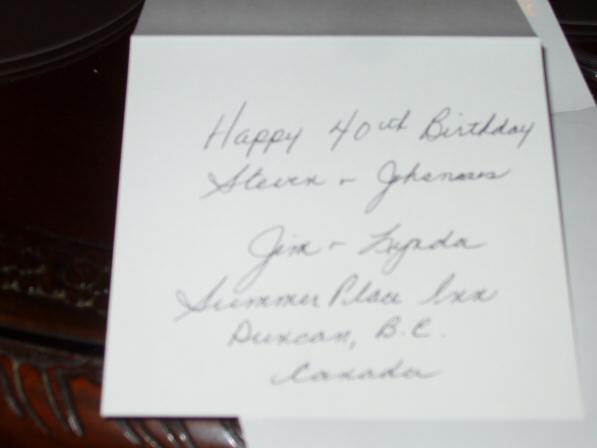 Happy 40th Birthday
Steven + Johannes
Jim + Lynda
Summer Place Inn
Duncan, B.C.
Canada